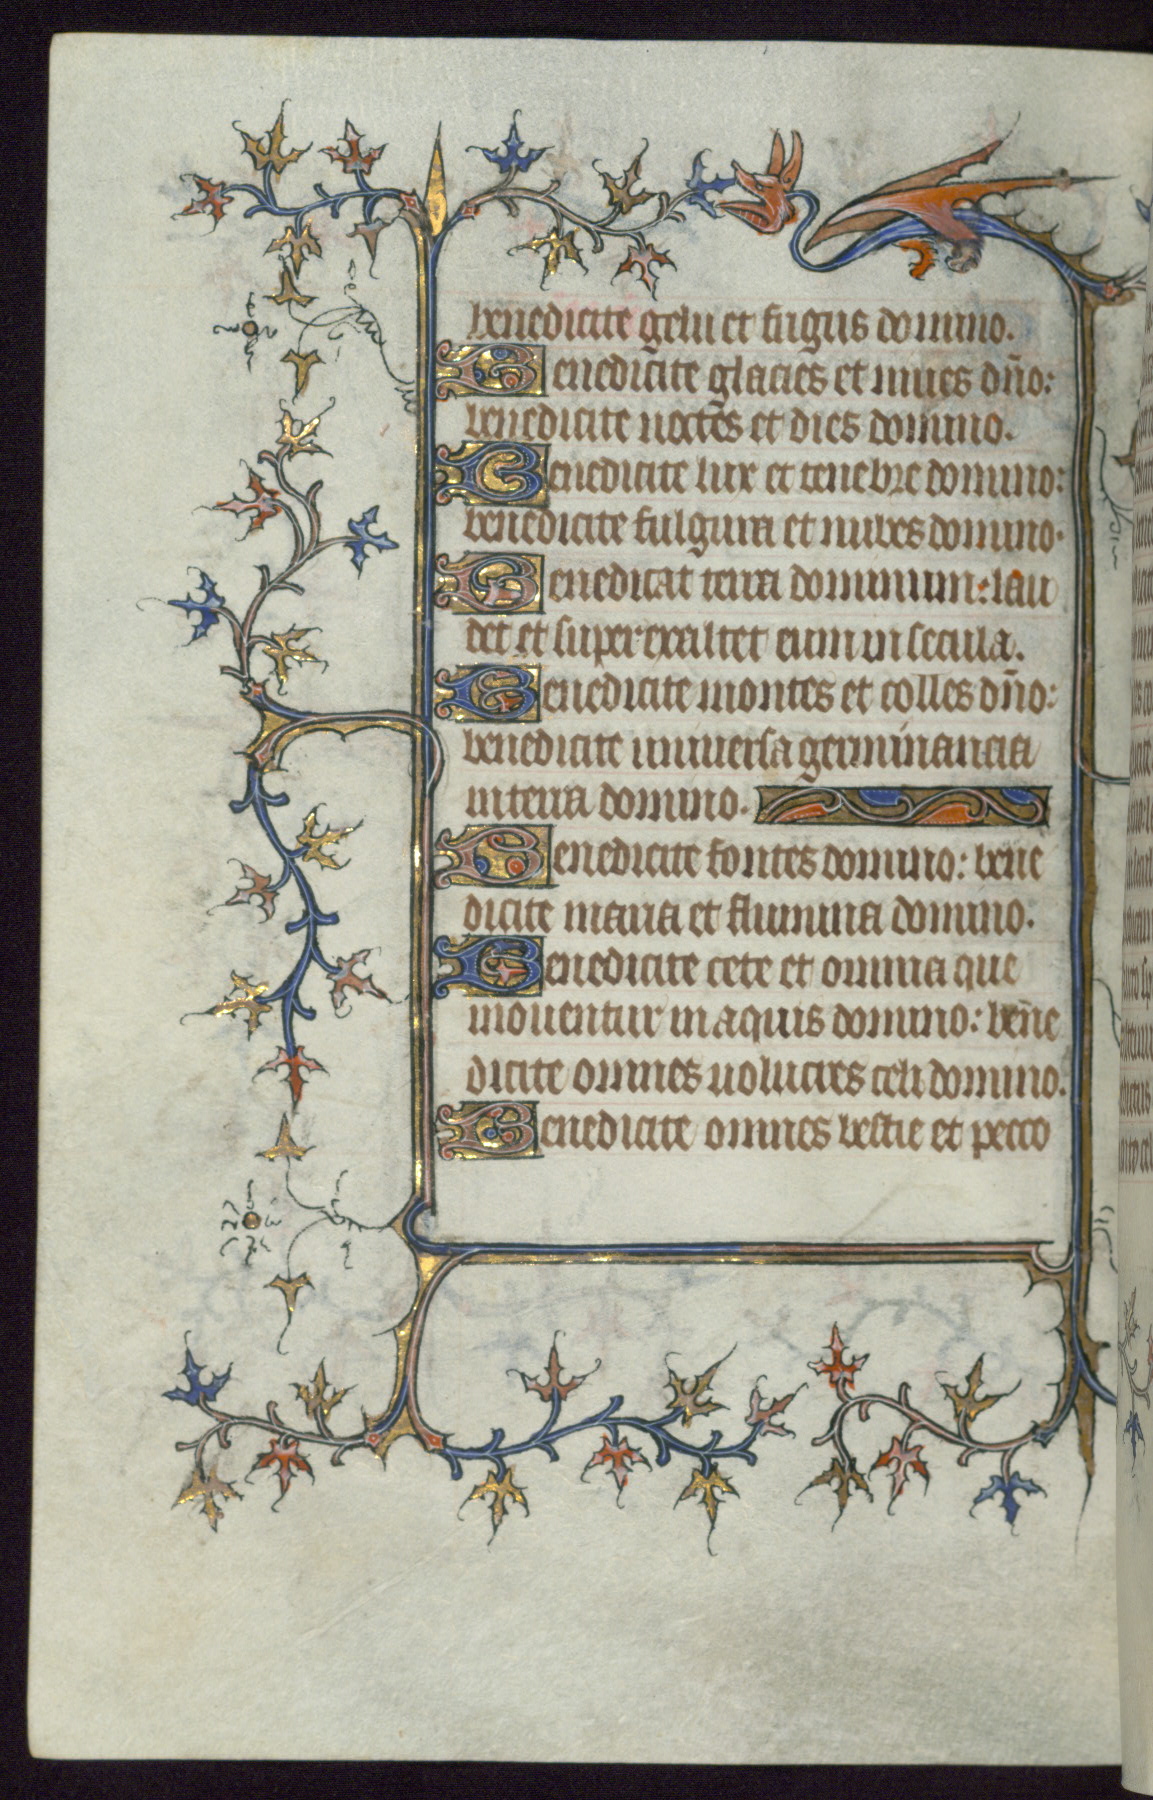 benedicite gelu et frigus domino.
Benedicite glacies et niues dño:
benedicite noctes et dies domino.
Benedicite lux et tenebre domino:
benedicite fulgura et nubes domino.
Benedicat terra dominum: lau
det et superexaltet eum in secula.
Benedicite montes et colles dño:
benedicite uniuersa germinancia
in terra domino.
Benedicite fontes domino: bene
dicite maria et flumina domino.
Benedicite cete et omnia que
mouentur in aquis domino: bene
dicite omnes uolucres celi domino.
Benedicite omnes bestie et pecco